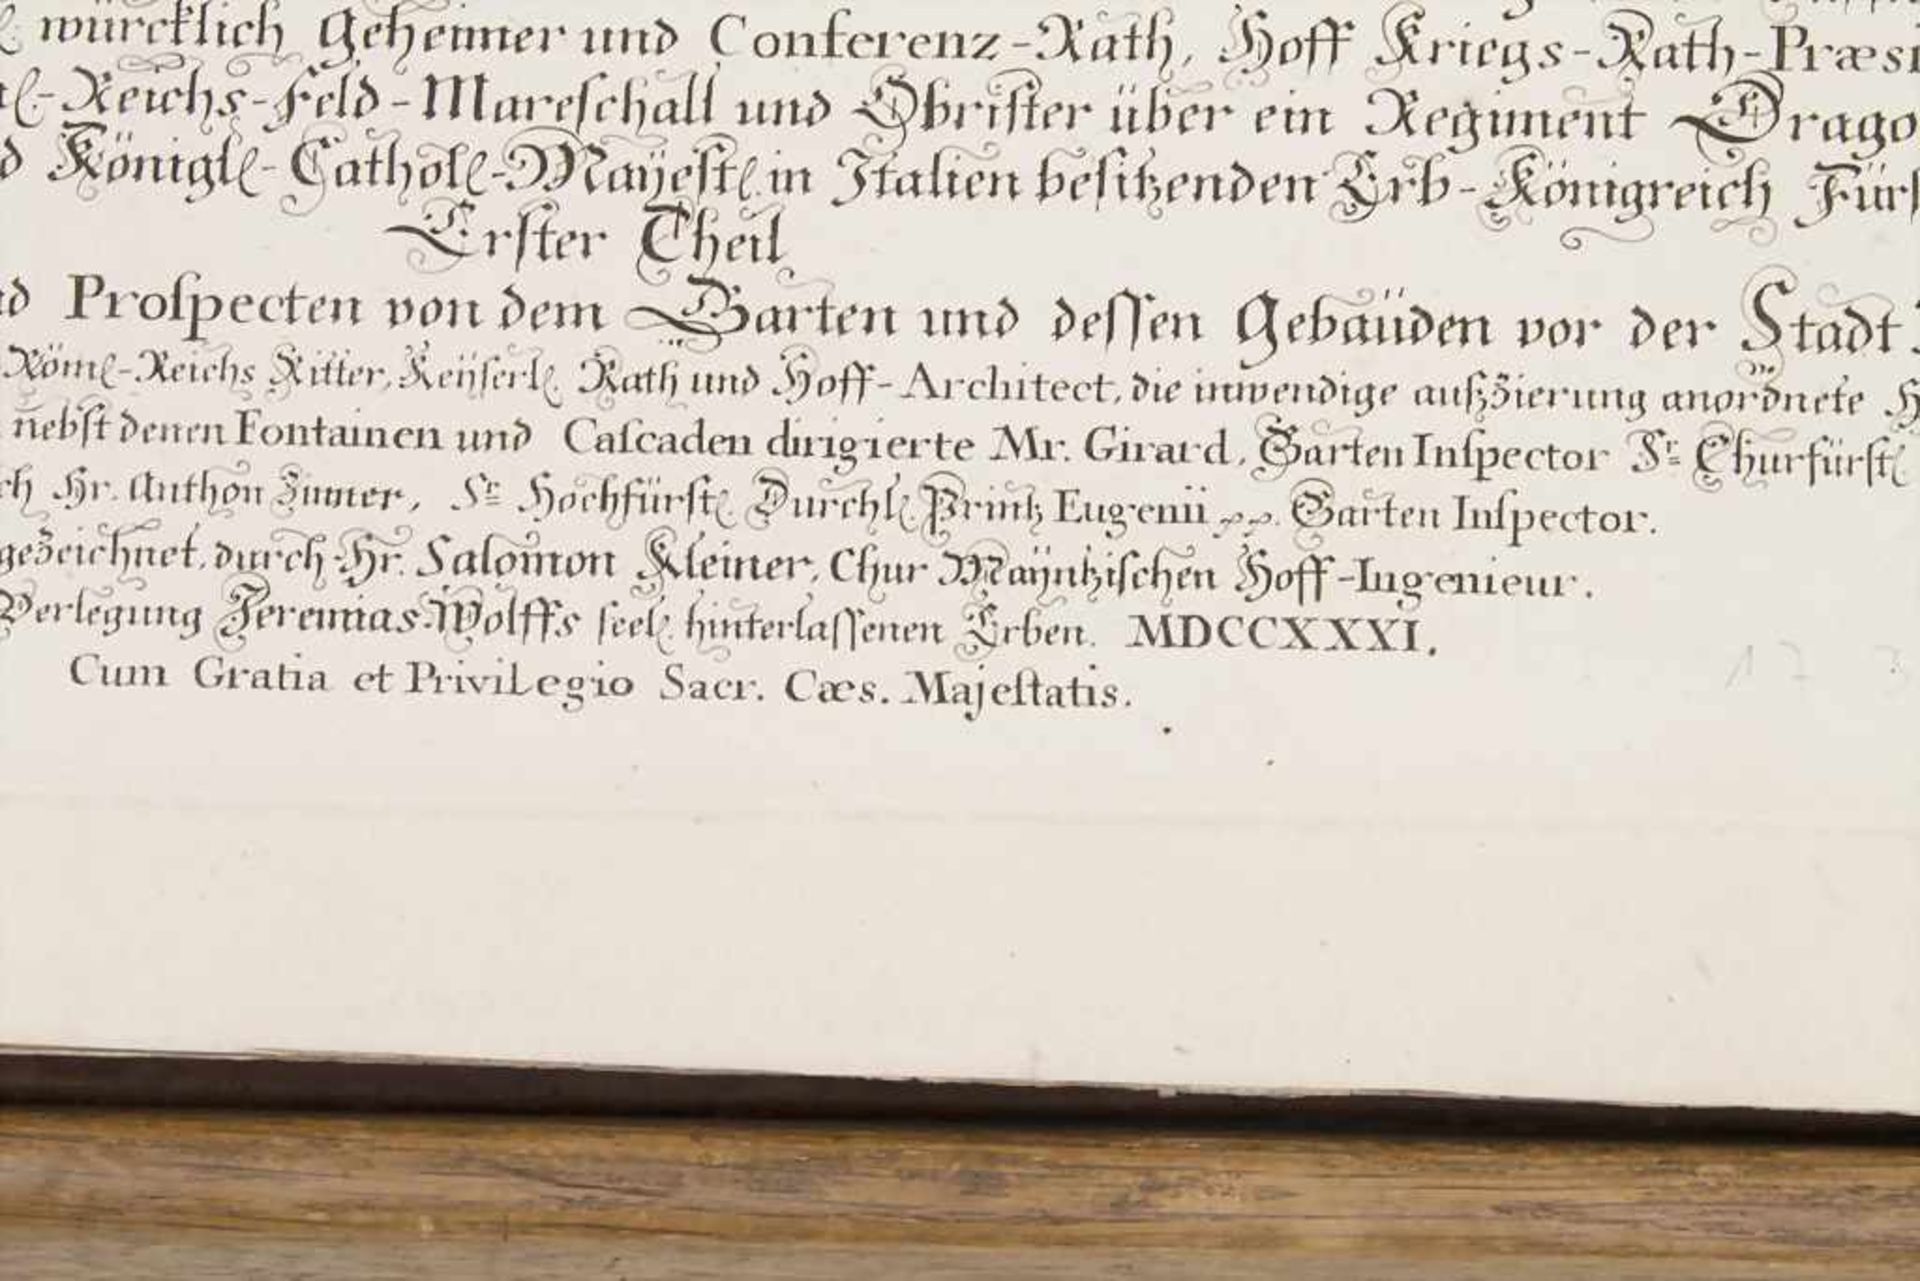 würcklich Geheimer und Conferenz-Rath, Hoff Kriegs-Rath-Præsi
l.-Reichs-Feld-Mareſchall und Obriſter über ein Regiment Drago
d Königl.-Cathol.-Maÿeſt. in Italien beſitzenden Erb-Königreich Fürſ
Erſter Theil
nd Proſpecten von dem Garten und deſſen Gebäüden vor der Stadt
Röml.-Reichs Ritter, Keÿſerl. Rath und Hoff-Architect, die inwendige außzierung anordnete H
nebſt denen Fontainen und Caſcaden dirigierte Mr. Girard, Garten Inſpector Sr. Churfürſtl.
ch Hr. Anthon Zinner, Sr. Hochfürſtl. Durchl. Printz Eugenii pp. Garten Inſpector.
gezeichnet, durch Hr. Salomon Kleiner, Chur Maÿntziſchen Hoff-Ingenieur.
Verlegung Jeremias Wolffs ſeel. hinterlaſſenen Erben. MDCCXXXI.
Cum Gratia et Privilegio Sacr. Cæs. Majeſtatis.
17 3